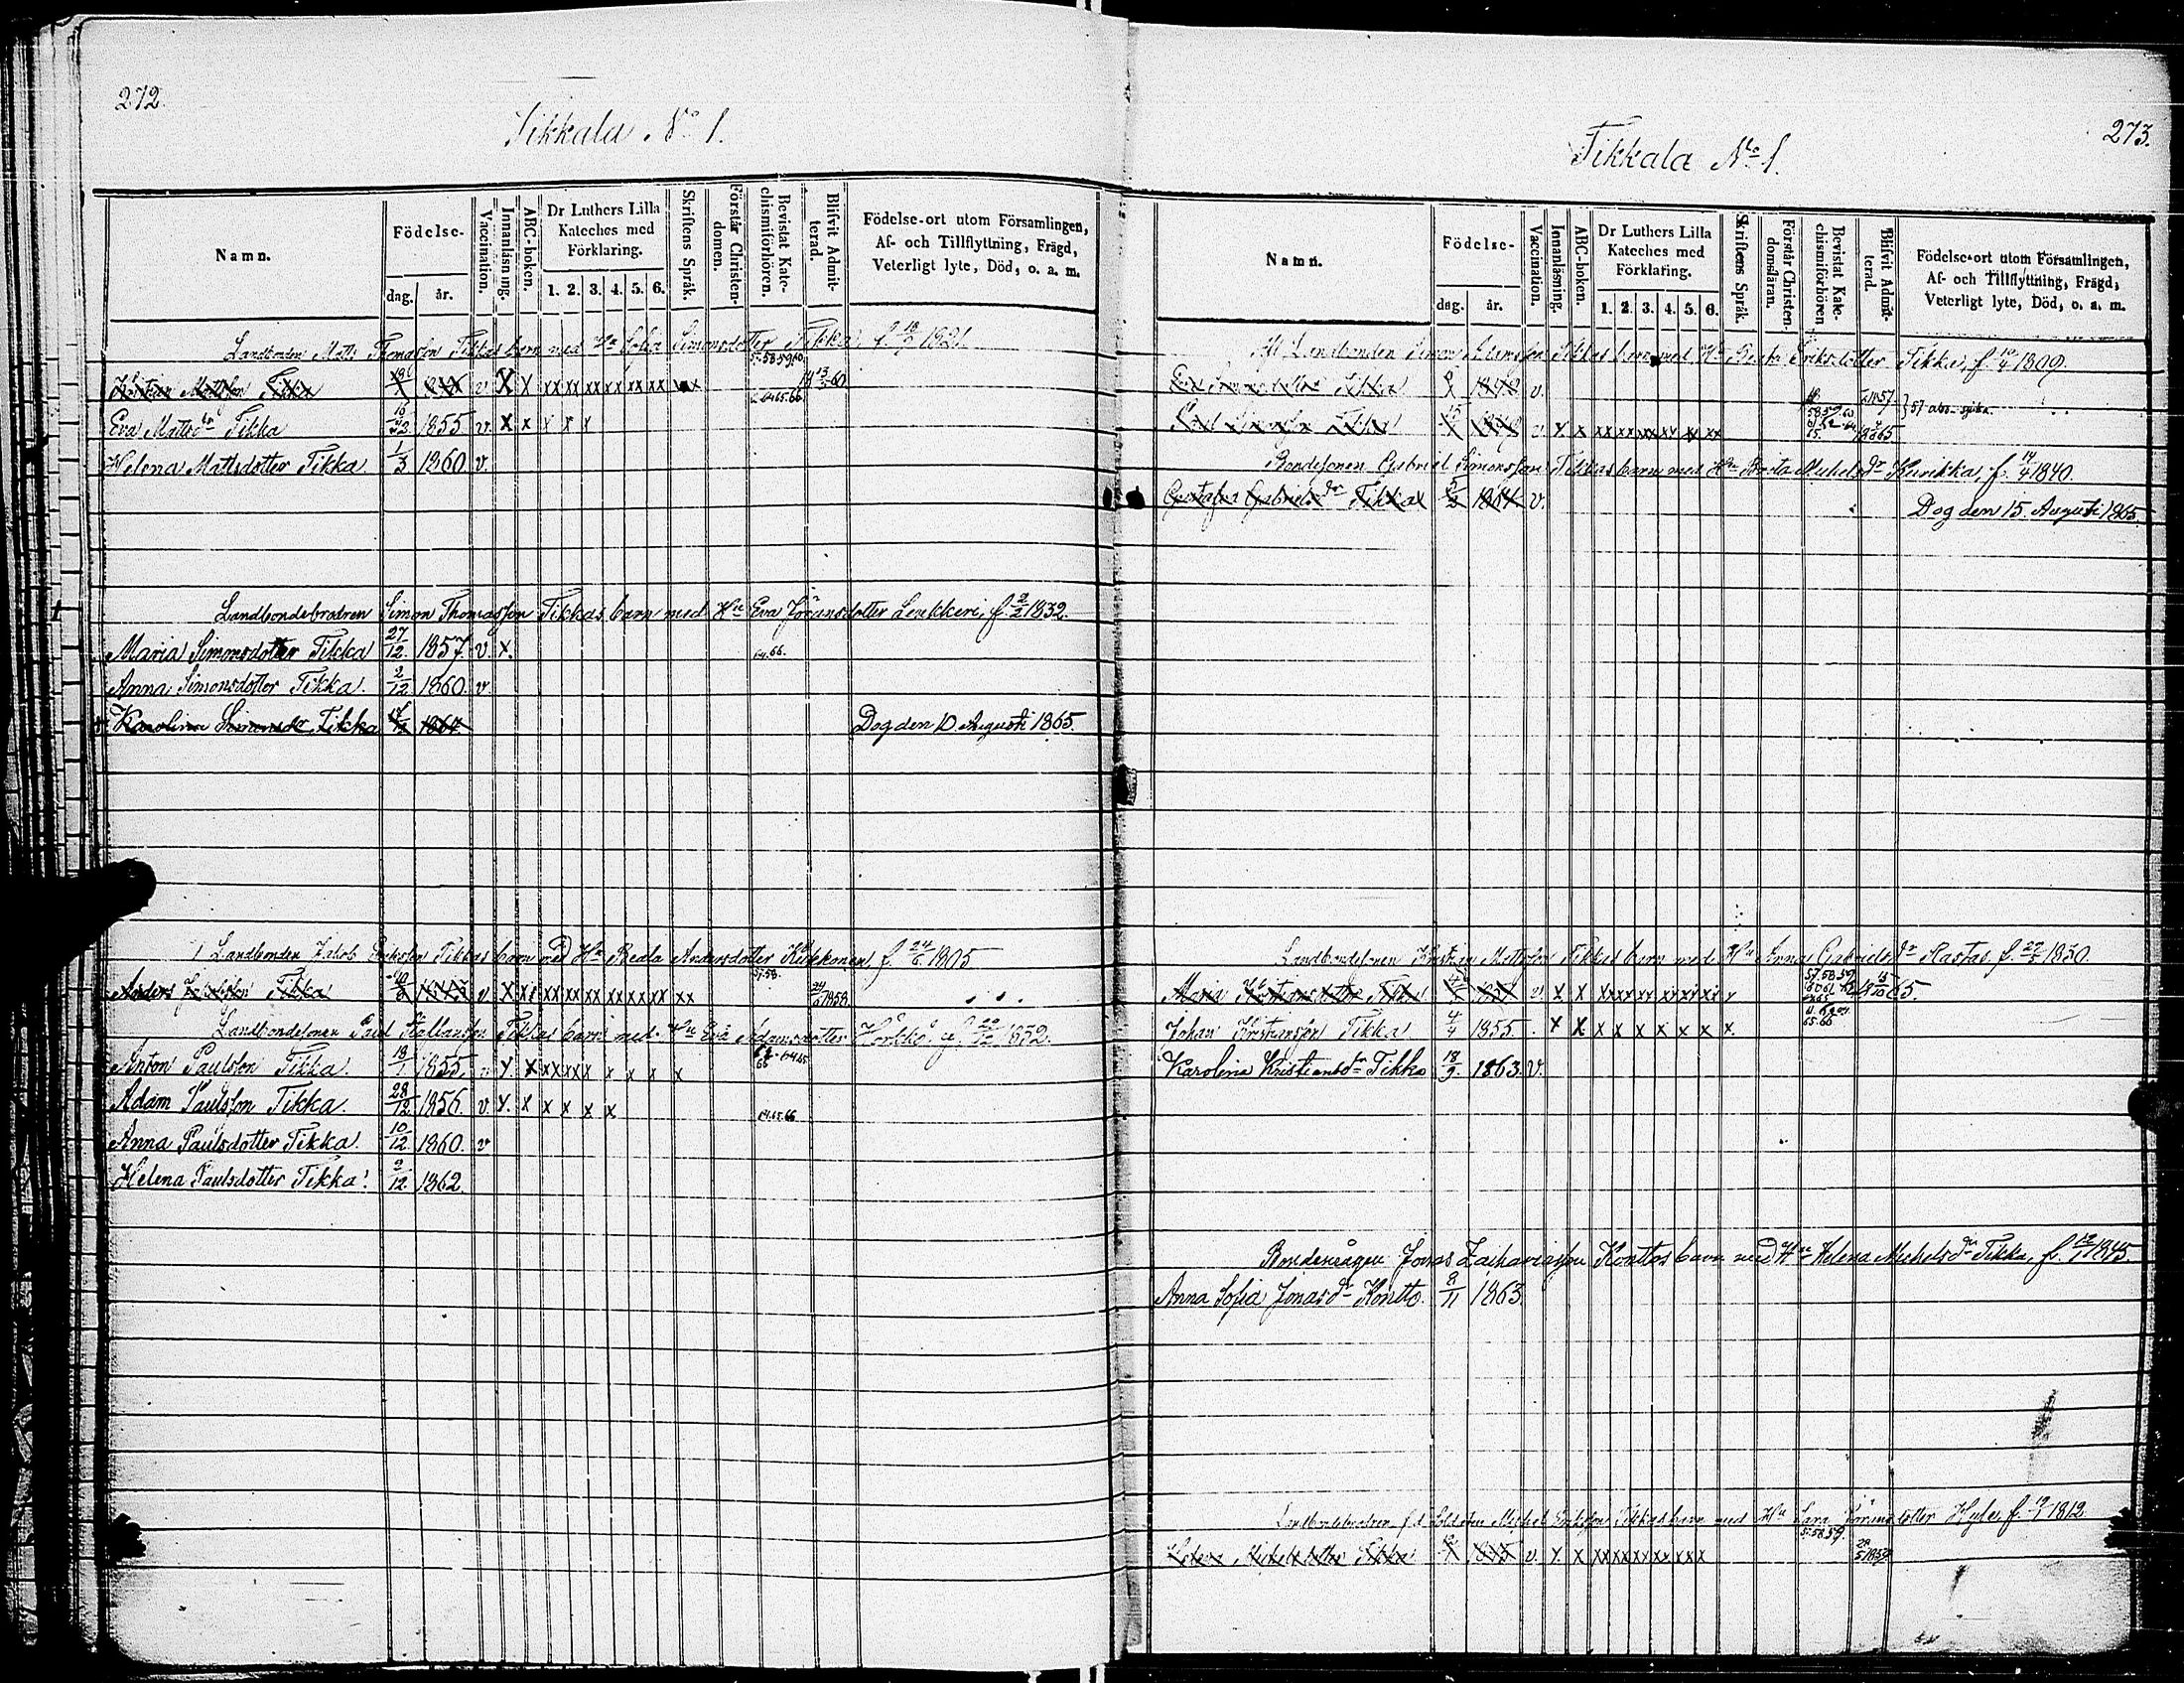 272.
Tikkala No 1.
Namn.
Födelse-
dag.
år.
Vaccination.
Innanläsning.
ABC-boken.
Dr Luthers Lilla
Kateches med
Förklaring.
1. 2. 3. 4. 5. 6.
Skriftens Språk.
Förstår Christen-
domen.
Bevistat Kate-
chismiförhören.
Blifvit Admit-
terad.
Födelse-ort utom Församlingen,
Af- och Tillflyttning, Frägd,
Veterligt lyte, Död, o. a. m.
Landbonden Matts Thomasson Tikkas barn med Hu Sofia Simonsdotter Tikka f. 1821.
Kristian Mattsson Tikka v. X x xx xx xx xx xx xx
Eva Mattsdr Tikka 1855 v. x x x x x
Helena Mattsdotter Tikka 1/3 1860 v.
Landbondebrodren Simon Thomasson Tikkas barn med Hu Eva Jöransdotter Leukkeri, f. 2/2 1832.
Maria Simonsdotter Tikka 27/12. 1857. v. x. 64.66.
Anna Simonsdotter Tikka. 2/12 1860. v.
Karolina Simonsdr Tikka 1864 Dog den 10 Augusti 1865.
Landbonden Jakob Tikkas barn med Hu Beata Andersdotter Kukkonen, f. 24/6 1805.
Anders Tikka v x x xx xx xx xx xx xx xx 57.58. 1858
Landbondesonen Paul Tikkas barn med Hu Eva Adamsdotter f. 1832.
Anton Paulsson Tikka. 18/1 1855. v x x xx xx x x x x
Adam Paulsson Tikka. 28/12 1856. v. x. x x x x x 64.65.66
Anna Paulsdotter Tikka. 10/12 1860. v
Helena Paulsdotter Tikka. 2/12 1862.
273.
Tikkala No 1.
Namn.
Födelse-
dag.
år.
Vaccination.
Innanläsning.
ABC-boken.
Dr Luthers Lilla
Kateches med
Förklaring.
1. 2. 3. 4. 5. 6.
Skriftens Språk.
Förstår Christen-
domsläran.
Bevistat Kate-
chismiförhören
Blifvit Admit-
terad.
Födelse-ort utom Församlingen,
Af- och Tillflyttning, Frägd,
Veterligt lyte, Död, o. a. m.
Landbonden Simon Tikkas barn med Hu Beata Eriksdotter Tikka, f. 1809.
Tikka v. 1857
Simonsson Tikka v x x xx xx xx xx xx xx 1865
Bondesonen Gabriel Simonsson Tikkas barn med Hu Brita Michelsdr Kurikka, f. 1840.
Gustafva Gabrielsdr Tikka 5/2 1864 v. Dog den 15. Augusti 1865.
Landbondesonen Kristian Mattsson Tikkas barn med Hu Anna Gabrielsdr Rastas f. 1830.
Maria Kristiansdotter Tikka v. x x xx xx xx xx xx xx x 57.58.59
Johan Kristiansson Tikka. 4/4 1855. x x x x x x x x x. 65.66
Karolina Kristiansdr Tikka 18/9. 1863. v.
Bondemågen Jonas Zachariasson Konttos barn med Hu Helena Michelsdr Tikka, f. 1845.
Anna Sofia Jonasdr Kontto. 8/11 1863.
Landbondebrodren f.d. Soldaten Michel Eriksson Tikkas barn med Hu Sara Göransdotter f. 1812.
Helena Michelsdotter Tikka v. x x xx xx xx xx x x 57.58.59. 1859